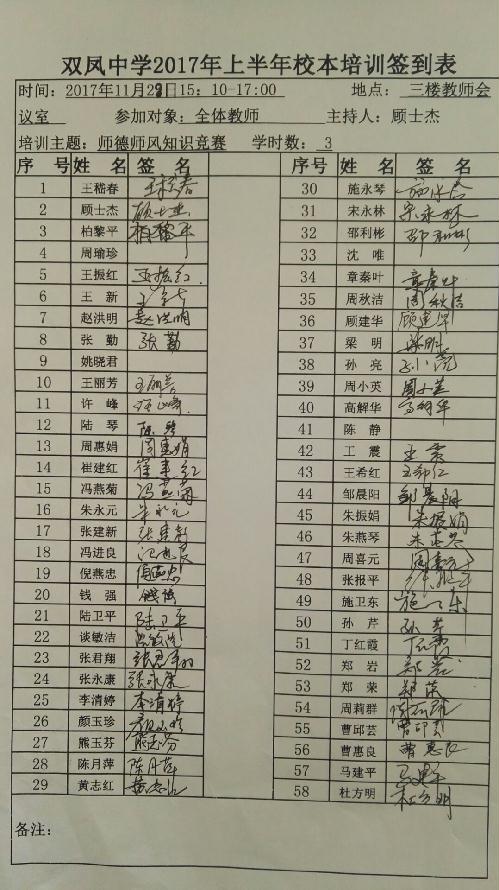 双凤中学2017年上半年校本培训签到表
时间：2017年11月28日15：10-17:00 地点：三楼教师会
议室 参加对象：全体教师 主持人：顾士杰
培训主题：师德师风知识竞赛 学时数：3
序 号 姓 名 签 名 序 号 姓 名 签 名
1 王嵇春 30 施永琴
2 顾士杰 顾士杰 31 宋永林 宋永林
3 柏黎平 柏黎平 32 邵利彬 邵利彬
4 周瑜珍 33 沈 唯
5 王振红 王振红 34 章秦叶 章秦叶
6 王 新 35 周秋洁 周秋洁
7 赵洪明 赵洪明 36 顾建华 顾建华
8 张 勤 张勤 37 梁 明 梁明
9 姚晓君 38 孙 亮
10 王丽芳 王丽芳 39 周小英 周小英
11 许 峰 许峰 40 高解华 高解华
12 陆 琴 陆琴 41 陈 静
13 周惠娟 周惠娟 42 王 震 王震
14 崔建红 崔建红 43 王希红 王希红
15 冯燕菊 冯燕菊 44 邹晨阳 邹晨阳
16 朱永元 朱永元 45 朱振娟 朱振娟
17 张建新 张建新 46 朱燕琴
18 冯进良 冯进良 47 周喜元 周喜元
19 倪燕忠 倪燕忠 48 张报平
20 钱 强 钱强 49 施卫东 施卫东
21 陆卫平 陆卫平 50 孙 芹 孙芹
22 谈敏洁 谈敏洁 51 丁红霞 丁红霞
23 张君翔 张君翔 52 郑 岩 郑岩
24 张永康 张永康 53 郑 荣 郑荣
25 李清婷 李清婷 54 周莉群
26 颜玉珍 颜玉珍 55 曹邱芸 曹邱芸
27 熊玉芬 熊玉芬 56 曹惠良 曹惠良
28 陈月萍 陈月萍 57 马建平 马建平
29 黄志红 黄志红 58 杜方明 杜方明
备注：